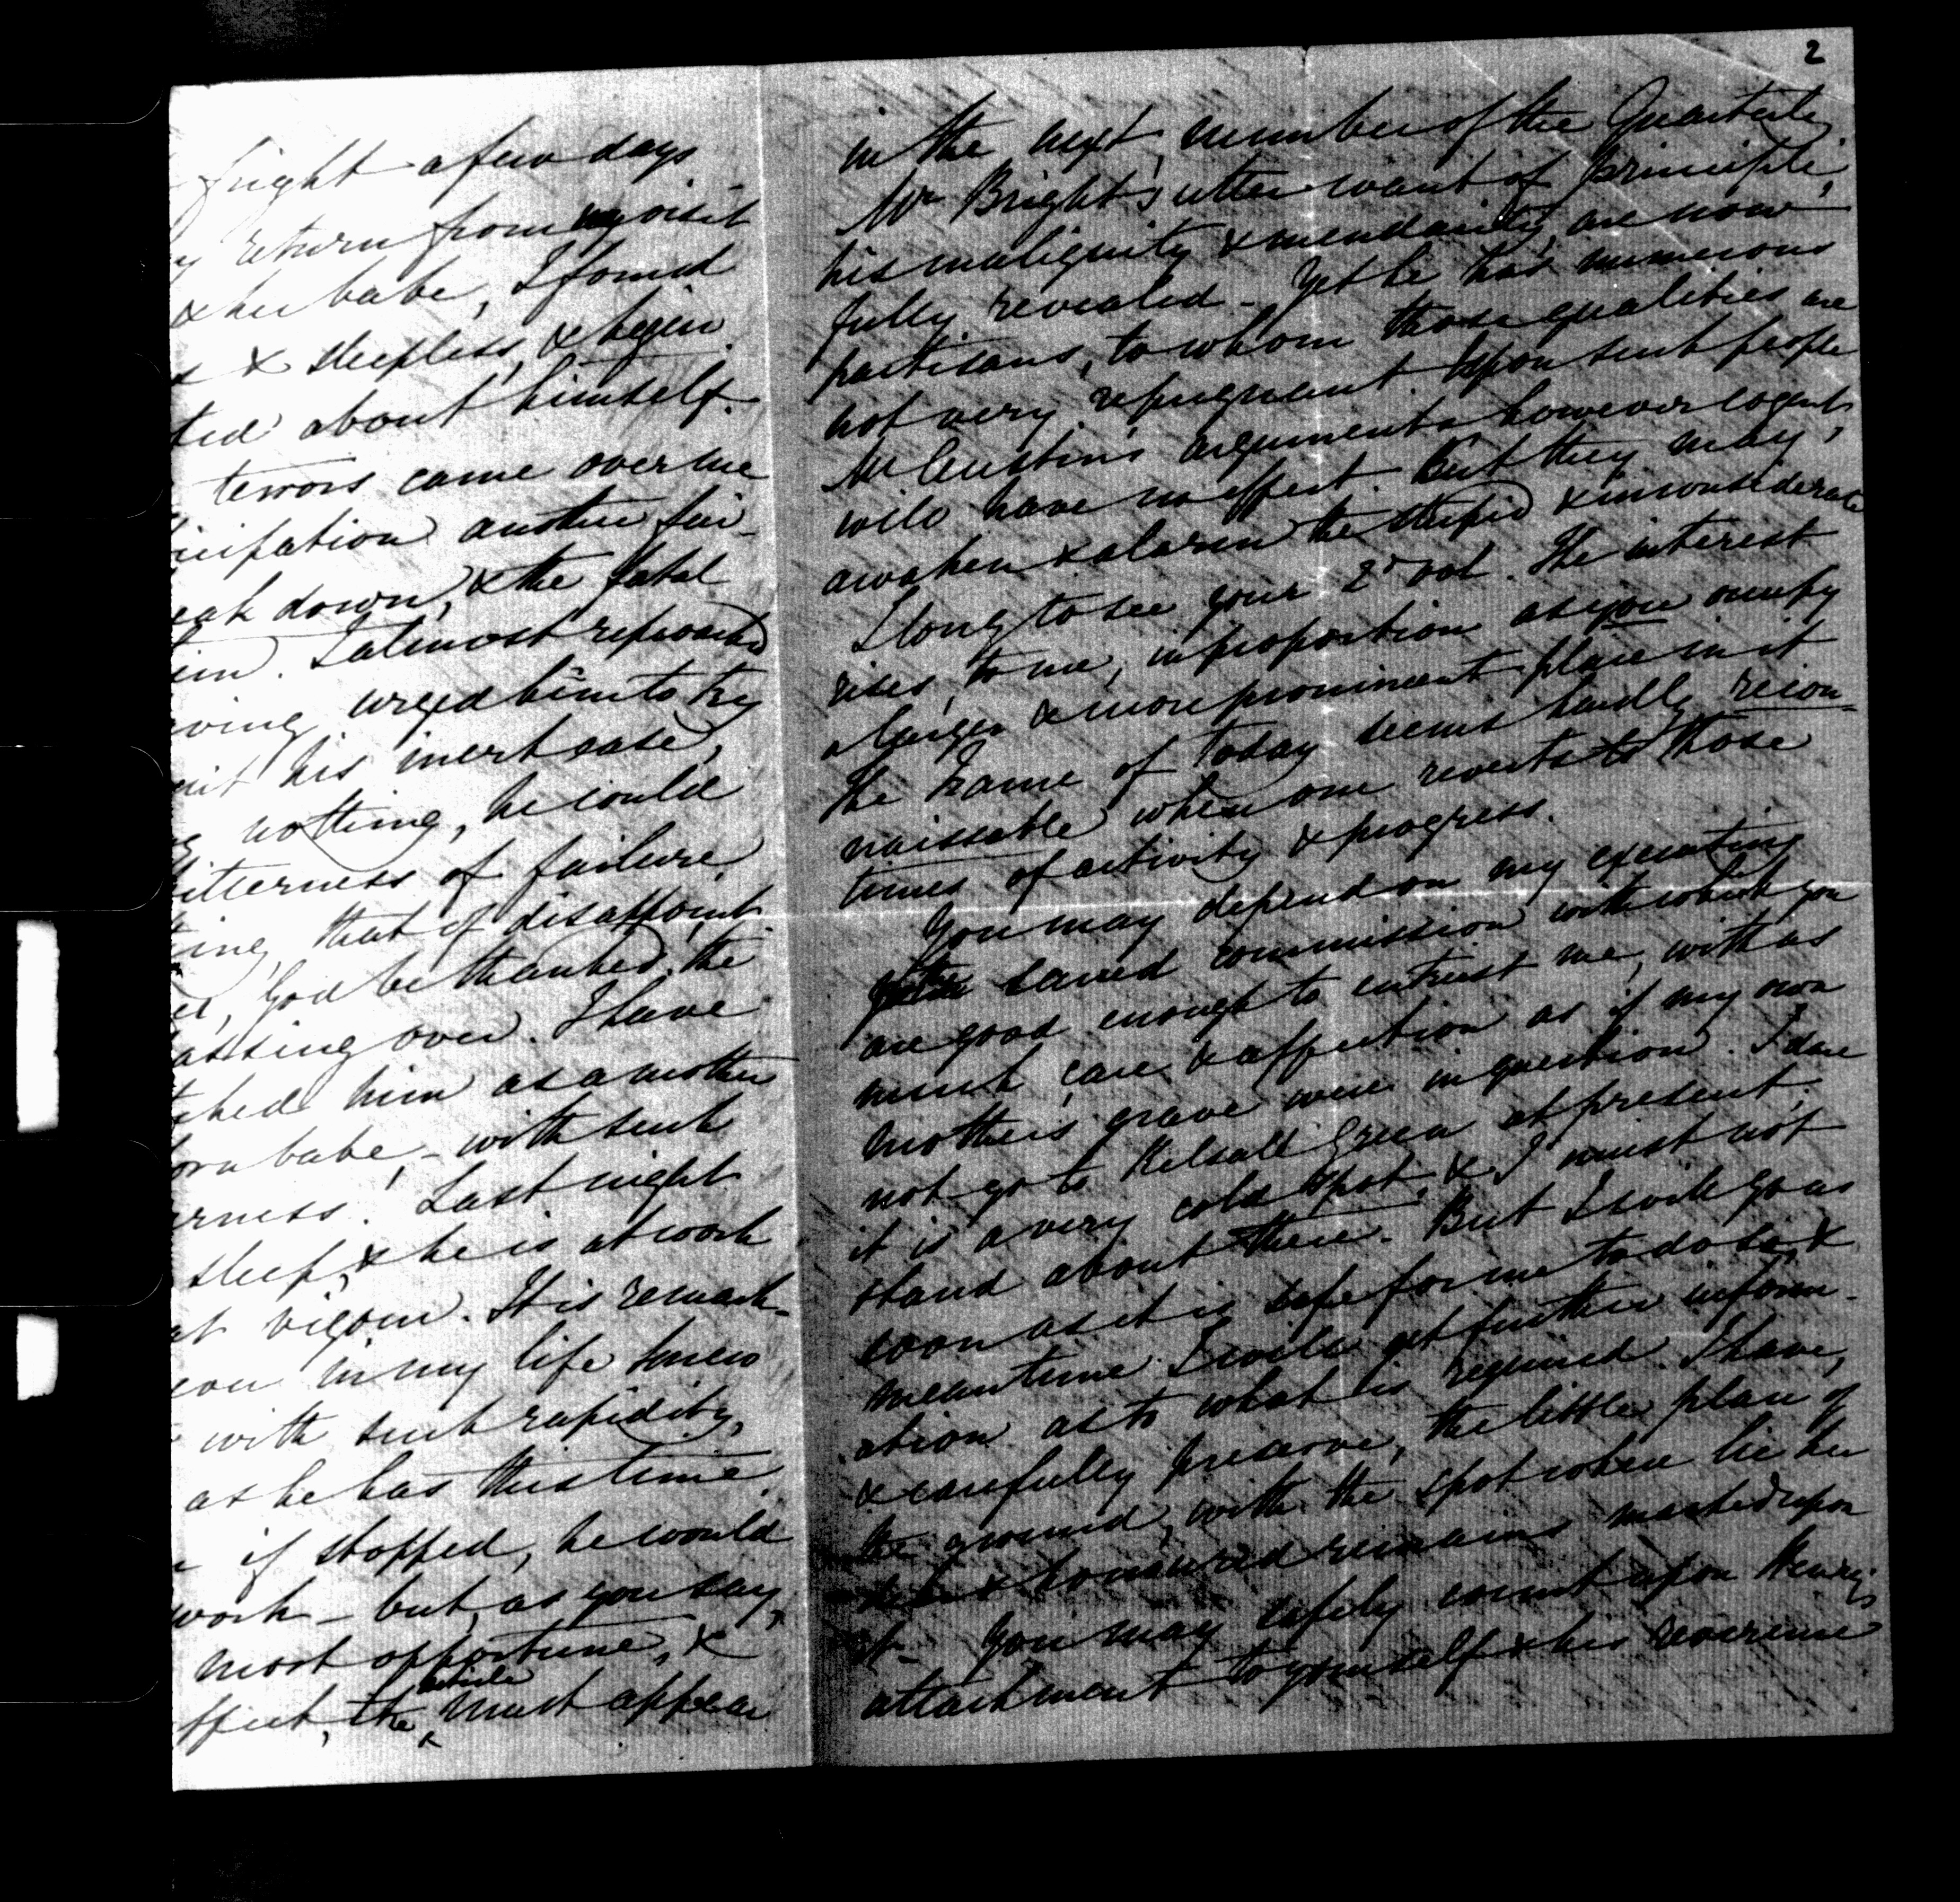 fright a few days
return from my visit
& her babe, I found
& sleepless, & began
ted about himself.
terrors came over me
cipation another fai-
eak down, & the fatal
I almost reproached
ving urged him to try
his inert ease,
nothing, he could
bitterness of failure,
ing, that of disappoint
God be thanked, the
assing over. I have
ched him as a mother
orn babe, - with such
erness. Last night
sleep, & he is at work
at vigour. It is remark-
ever in my life knew
with such rapidity,
as he has this time.
if stopped, he would
work - but, as you say,
most opportune, &
ffect, the article must appear
2
in the next number of the Quarterly.
Mr Bright's utter want of principle,
his malignity & mendacity, are now
fully revealed - Yet he has numerous
partisans, to whom those qualities are
not very repugnant. Upon such people
Mr Austin's arguments however cogent,
will have no effect. But they may
awaken & alarm the stupid & inconsiderate
I long to see your 2d vol. The interest
rises, to me, in proportion as you occupy
a larger & more prominent place in it
The France of today seems hardly recon-
naissable when one reverts to those
times of activity & progress.
You may depend on my executing
the sacred commission with which you
are good enough to entrust me, with as
much care & affection as if my own
mother's grave were in question. I dare
not go to Kelsall Green at present;
it is a very cold spot, & I must not
stand about there. But I will go as
soon as it is safe for me to do so, &
meantime I will get further inform-
ation as to what is required. I have,
& carefully preserve, the little plan of
the ground, with the spot where lie her
dear & honoured remains marked upon
it - You may safely count upon Henry's
attachment to yourself & his reverence